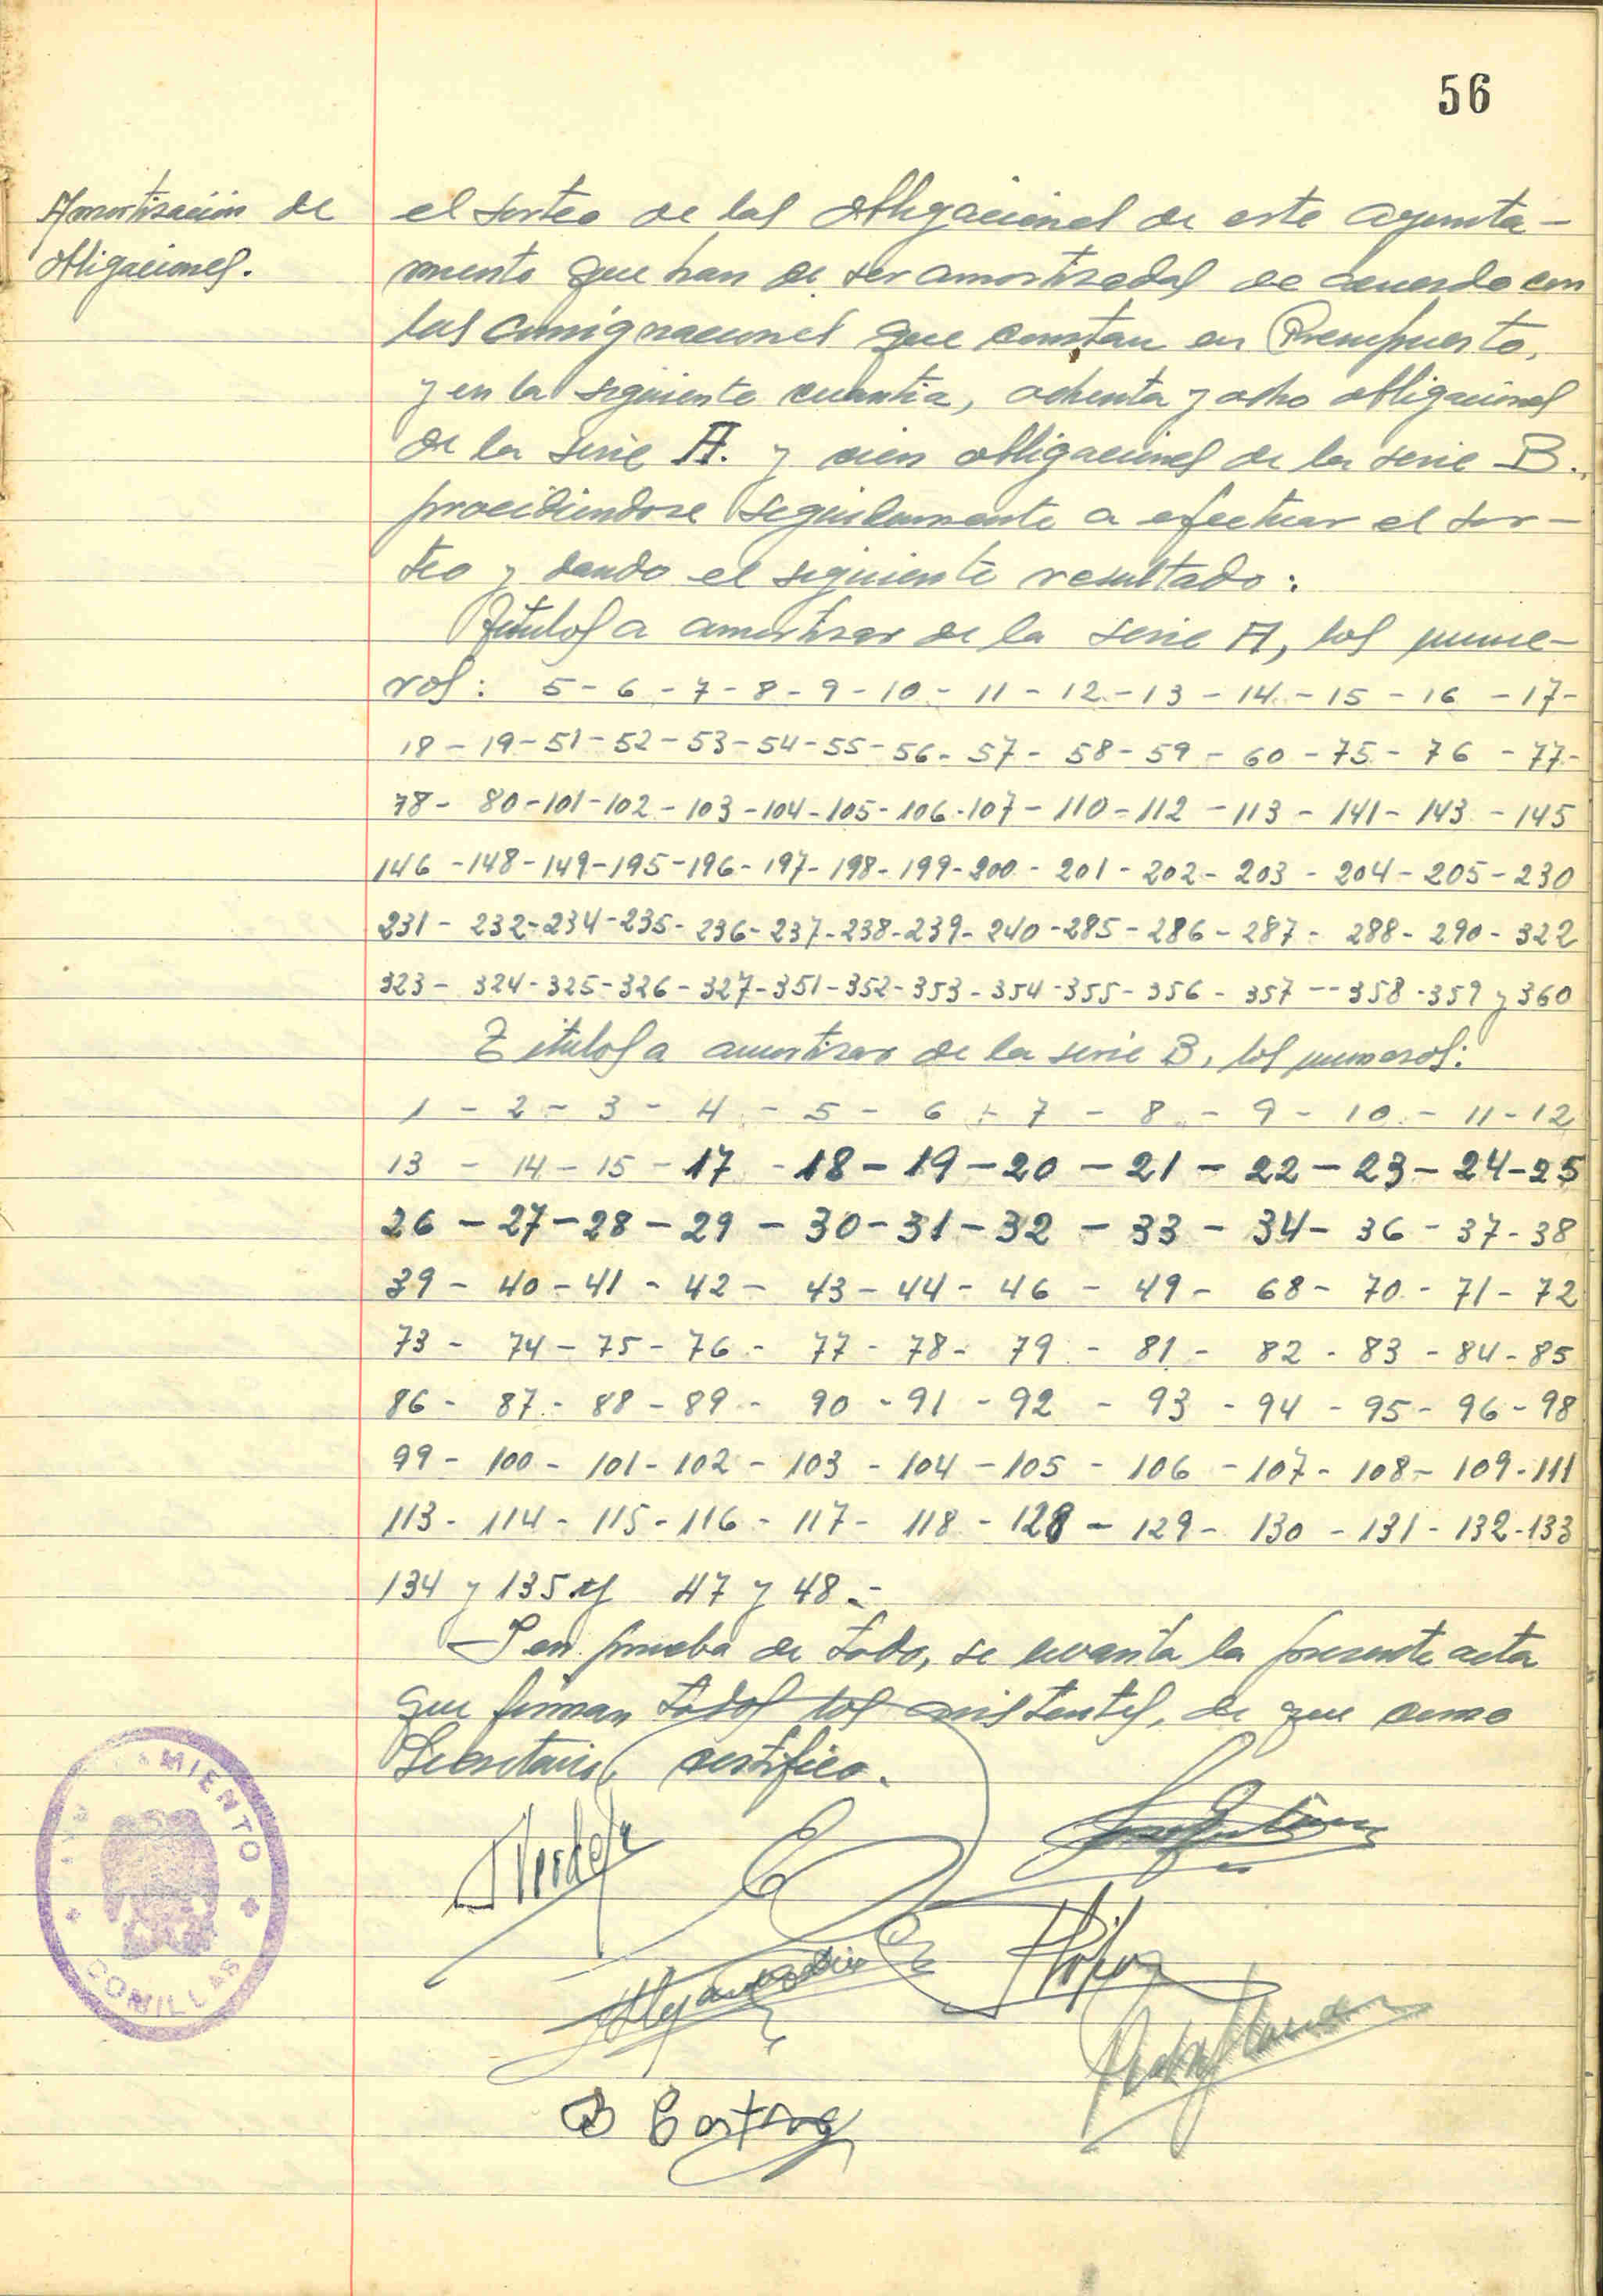 56
Amortización de
obligaciones.
el sorteo de las obligaciones de este ayunta-
miento que han de ser amortizadas de acuerdo con
las consignaciones que constan en Presupuesto,
y en la siguiente cuantia, ochenta y ocho obligaciones
de la serie A. y cien obligaciones de la serie B.,
procediendose seguidamente a efectuar el sor-
teo y dando el siguiente resultado:
Titulos a amortizar de la serie A, los nume-
ros: 5 - 6 - 7 - 8 - 9 - 10 - 11 - 12 - 13 - 14 - 15 - 16 - 17 -
18 - 19 - 51 - 52 - 53 - 54 - 55 - 56 - 57 - 58 - 59 - 60 - 75 - 76 - 77 -
78 - 80 - 101 - 102 - 103 - 104 - 105 - 106 - 107 - 110 - 112 - 113 - 141 - 143 - 145
146 - 148 - 149 - 195 - 196 - 197 - 198 - 199 - 200 - 201 - 202 - 203 - 204 - 205 - 230
231 - 232 - 234 - 235 - 236 - 237 - 238 - 239 - 240 - 285 - 286 - 287 - 288 - 290 - 322
323 - 324 - 325 - 326 - 327 - 351 - 352 - 353 - 354 - 355 - 356 - 357 -- 358 - 359 y 360
Titulos a amortizar de la serie B, los numeros:
1 - 2 - 3 - 4 - 5 - 6 - 7 - 8 - 9 - 10 - 11 - 12
13 - 14 - 15 - 17 - 18 - 19 - 20 - 21 - 22 - 23 - 24 - 25
26 - 27 - 28 - 29 - 30 - 31 - 32 - 33 - 34 - 36 - 37 - 38
39 - 40 - 41 - 42 - 43 - 44 - 46 - 49 - 68 - 70 - 71 - 72
73 - 74 - 75 - 76 - 77 - 78 - 79 - 81 - 82 - 83 - 84 - 85
86 - 87 - 88 - 89 - 90 - 91 - 92 - 93 - 94 - 95 - 96 - 98
99 - 100 - 101 - 102 - 103 - 104 - 105 - 106 - 107 - 108 - 109 - 111
113 - 114 - 115 - 116 - 117 - 118 - 128 - 129 - 130 - 131 - 132 - 133
134 y 135 y 47 y 48.-
Y en prueba de todo, se levanta la presente acta
que firman todos los asistentes, de que como
Secretario, certifico.
COMILLAS